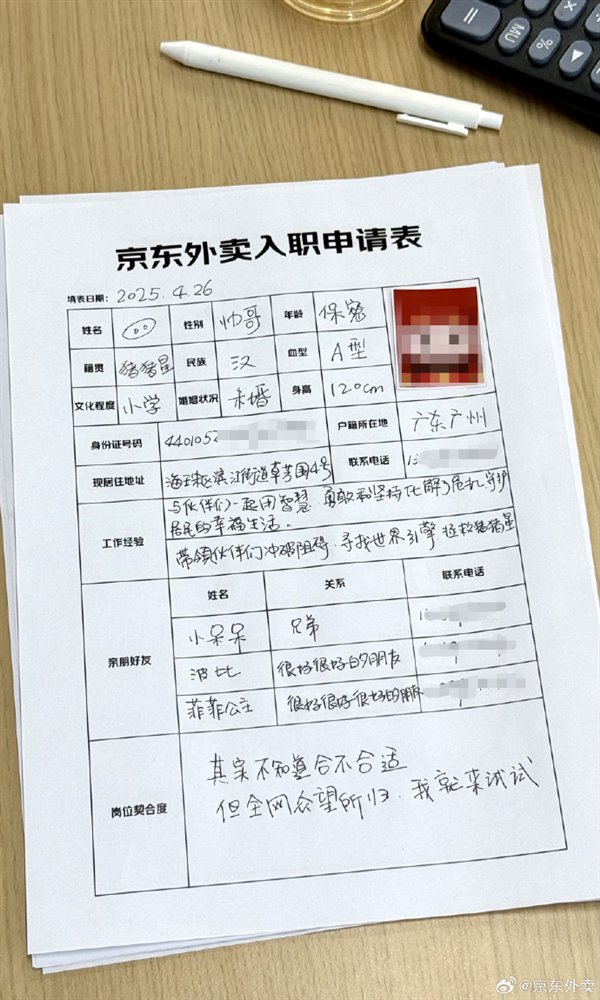 MU
%
京东外卖入职申请表
填表日期：2025.4.26
姓名 性别 帅哥 年龄 保密
籍贯 猪猪星 民族 汉 血型 A型
文化程度 小学 婚姻状况 未婚 身高 120cm
身份证号码 4401052 户籍所在地 广东广州
现居住地址 海珠区滨江街道草芳围4号 联系电话 13
工作经验
与伙伴们一起用智慧 勇敢和坚持化解了危机，守护
居民的幸福生活．
带领伙伴们冲破阻碍．寻找世界引擎 拯救猪猪星
亲朋好友
姓名 关系 联系电话
小呆呆 兄弟
波比 很好很好的朋友
菲菲公主 很好很好很好的朋友
岗位契合度
其实不知道合不合适
但全网众望所归．我就来试试
@京东外卖